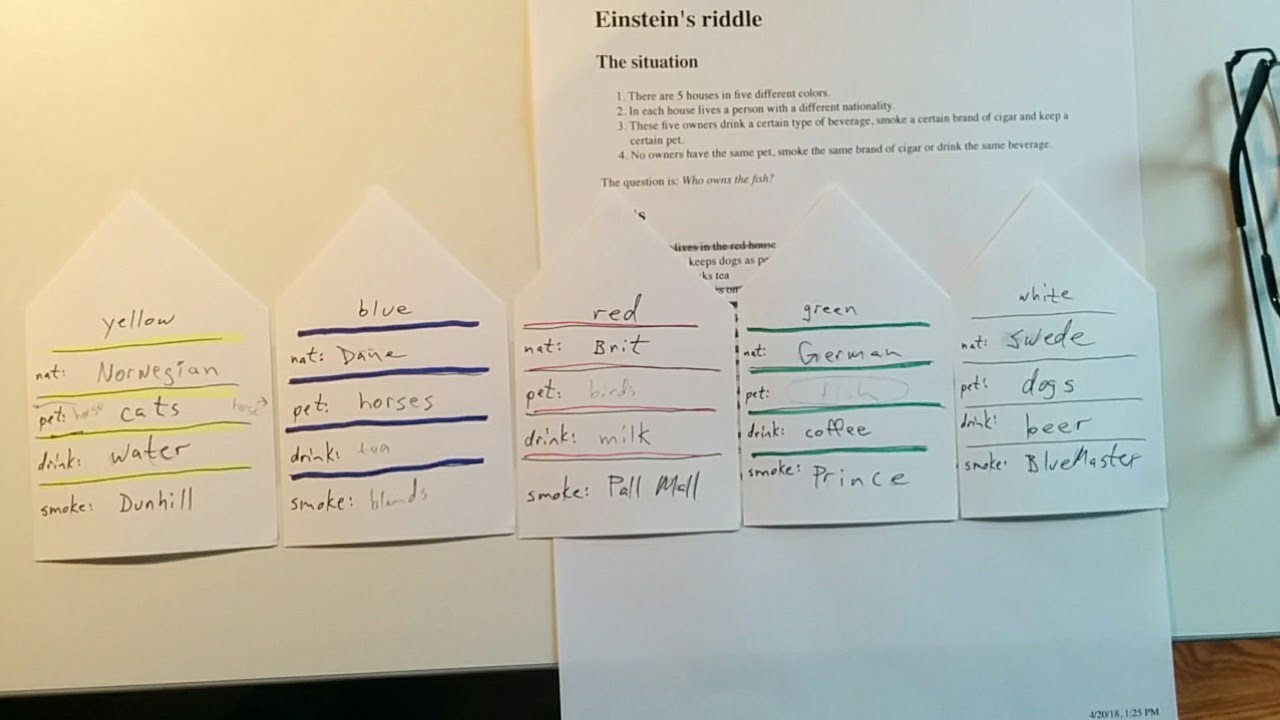 Einstein's riddle
The situation
1. There are 5 houses in five different colors.
2. In each house lives a person with a different nationality.
3. These five owners drink a certain type of beverage, smoke a certain brand of cigar and keep a
certain pet.
4. No owners have the same pet, smoke the same brand of cigar or drink the same beverage.
The question is: Who owns the fish?
's
lives in the red house
keeps dogs as pe
ks tea
is on
yellow
nat: Norwegian
pet: horse cats horse →
drink: water
smoke: Dunhill
blue
nat: Dane
pet: horses
drink: tea
smoke: blends
red
nat: Brit
pet: birds
drink: milk
smoke: Pall Mall
green
nat: German
pet: fish
drink: coffee
smoke: Prince
white
nat: Swede
pet: dogs
drink: beer
smoke: BlueMaster
4/20/18, 1:25 PM